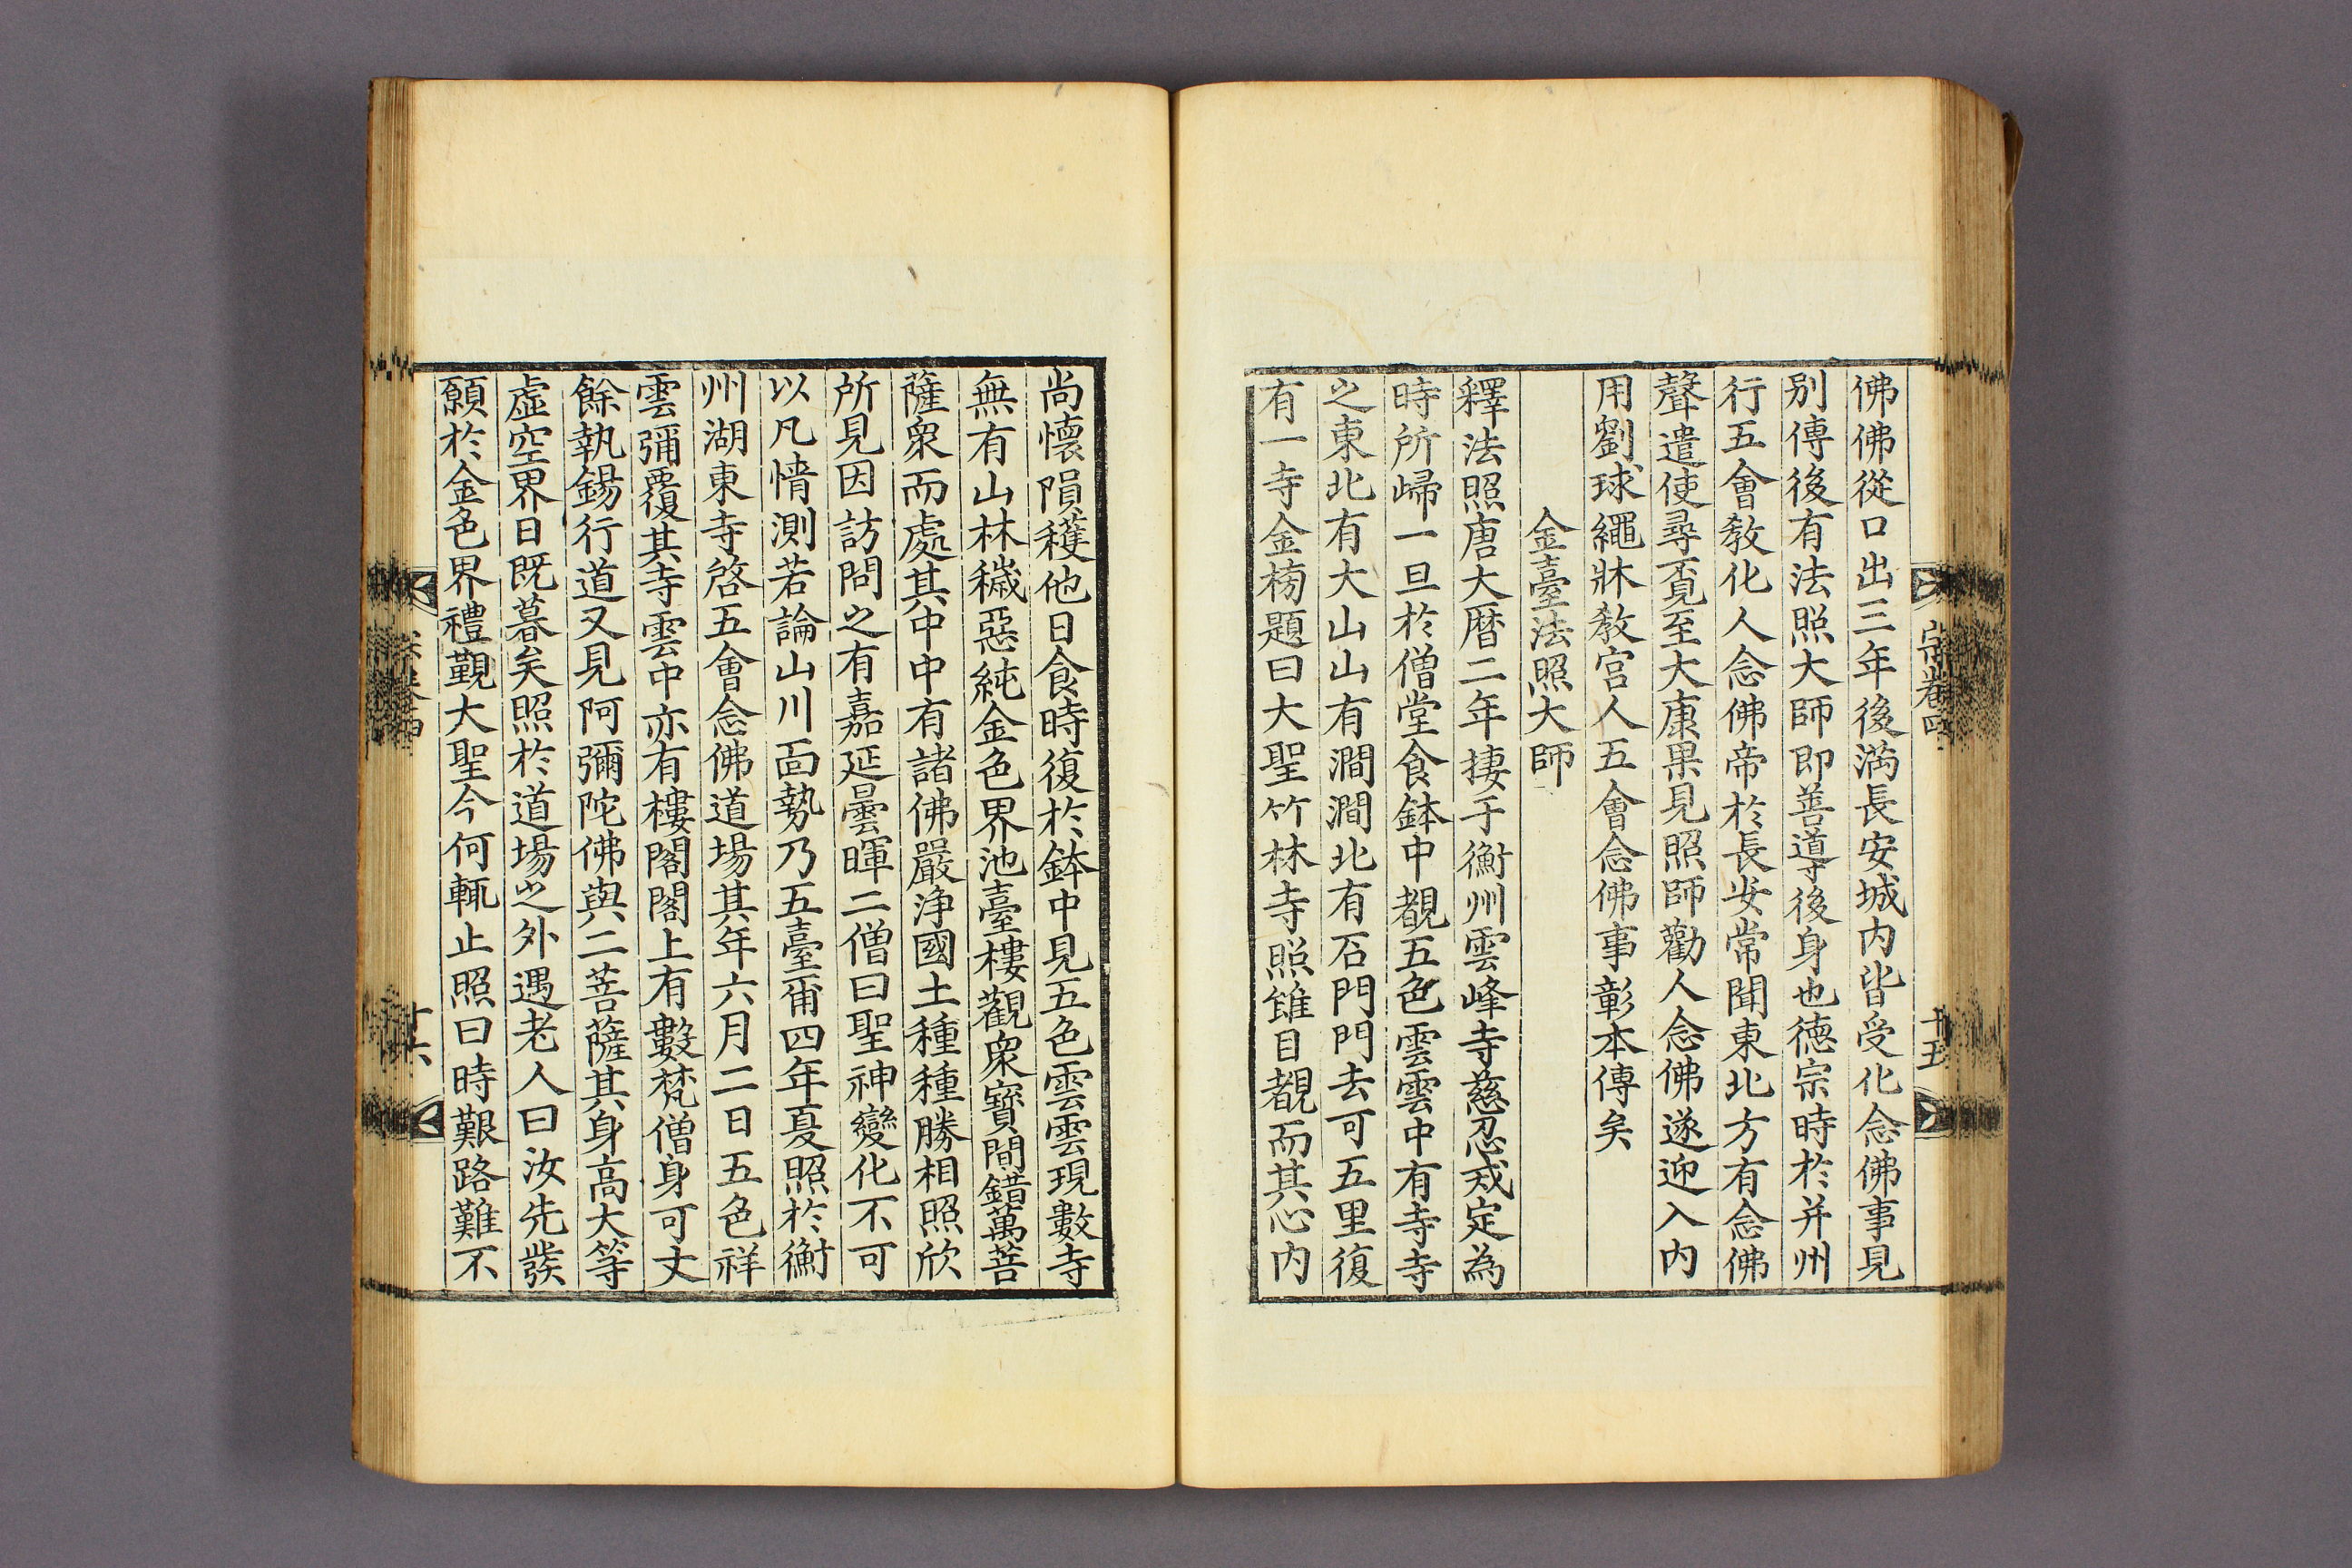 佛佛從口出三年後滿長安城内皆受化念佛事見
别傳後有法照大師即善導後身也德宗時於并州
行五會教化人念佛帝於長安常聞東北方有念佛
聲遣使尋覔至大康果見照師勸人念佛遂迎入内
用劉球繩牀教宫人五會念佛事彰本傳矣
金臺法照大師
釋法照唐大曆二年棲于衡州雲峰寺慈忍戒定為
時所歸一旦於僧堂食鉢中覩五色雲雲中有寺寺
之東北有大山山有澗澗北有石門門去可五里復
有一寺金榜題曰大聖竹林寺照雖目覩而其心内
宗卷四
十五
尚懷隕穫他日食時復於鉢中見五色雲雲現數寺
無有山林穢惡純金色界池臺樓觀衆寶間錯萬菩
薩衆而處其中中有諸佛嚴淨國土種種勝相照欣
所見因訪問之有嘉延曇暉二僧曰聖神變化不可
以凡情測若論山川面勢乃五臺甯四年夏照於衡
州湖東寺啓五會念佛道場其年六月二日五色祥
雲彌覆其寺雲中亦有樓閣閣上有數梵僧身可丈
餘執錫行道又見阿彌陀佛與二菩薩其身高大等
虛空界日既暮矣照於道場之外遇老人曰汝先發
願於金色界禮覲大聖今何輒止照曰時艱路難不
十六